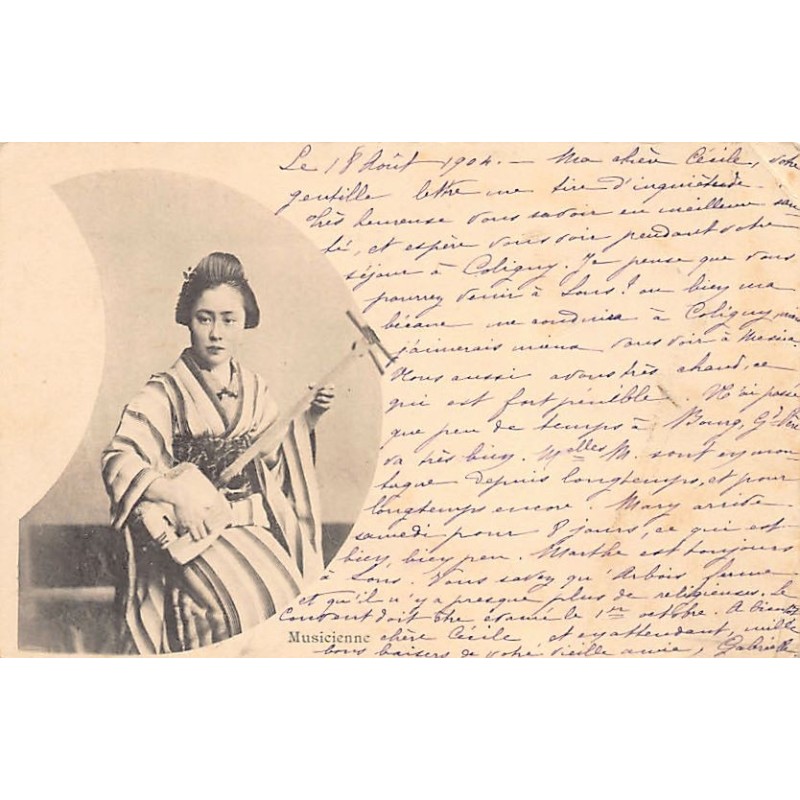 Le 18 Août 1904. — Ma chère Cécile, votre
gentille lettre me tire d'inquiétude.
Très heureuse vous savoir en meilleure san-
té, et espère vous voir pendant votre
séjour à Coligny. Je pense que vous
pourrez venir à Lons? ou bien ma
bécane me conduira à Coligny, mais
j'aimerais mieux vous voir à
Nous aussi avons très chaud, ce
qui est fort pénible. N'ai passé
que peu de temps à Bourg, Gd Père
va très bien. Melles M. sont en mon-
tagne depuis longtemps, et pour
longtemps encore. Mary arrive
samedi pour 8 jours, ce qui est
bien, bien peu. Marthe est toujours
à Lons. Vous savez qu'Arbois ferme
et qu'il n'y a presque plus de religieuses. Le
Couvent doit être évacué le 1er octobre. A bientôt
Musicienne chère Cécile et en attendant, mille
bons baisers de votre vieille amie, Gabrielle